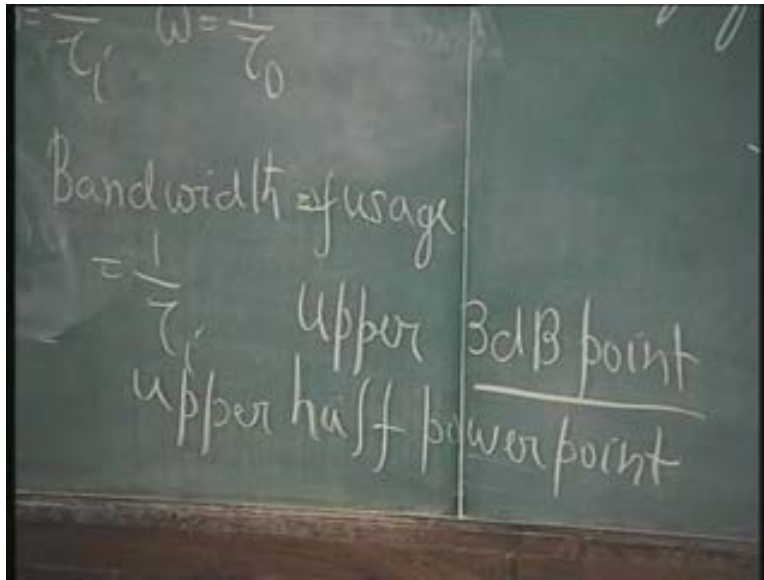 = 1/τi ω = 1/τ0
Bandwidth of usage
= 1/τi upper 3dB point
upper half power point